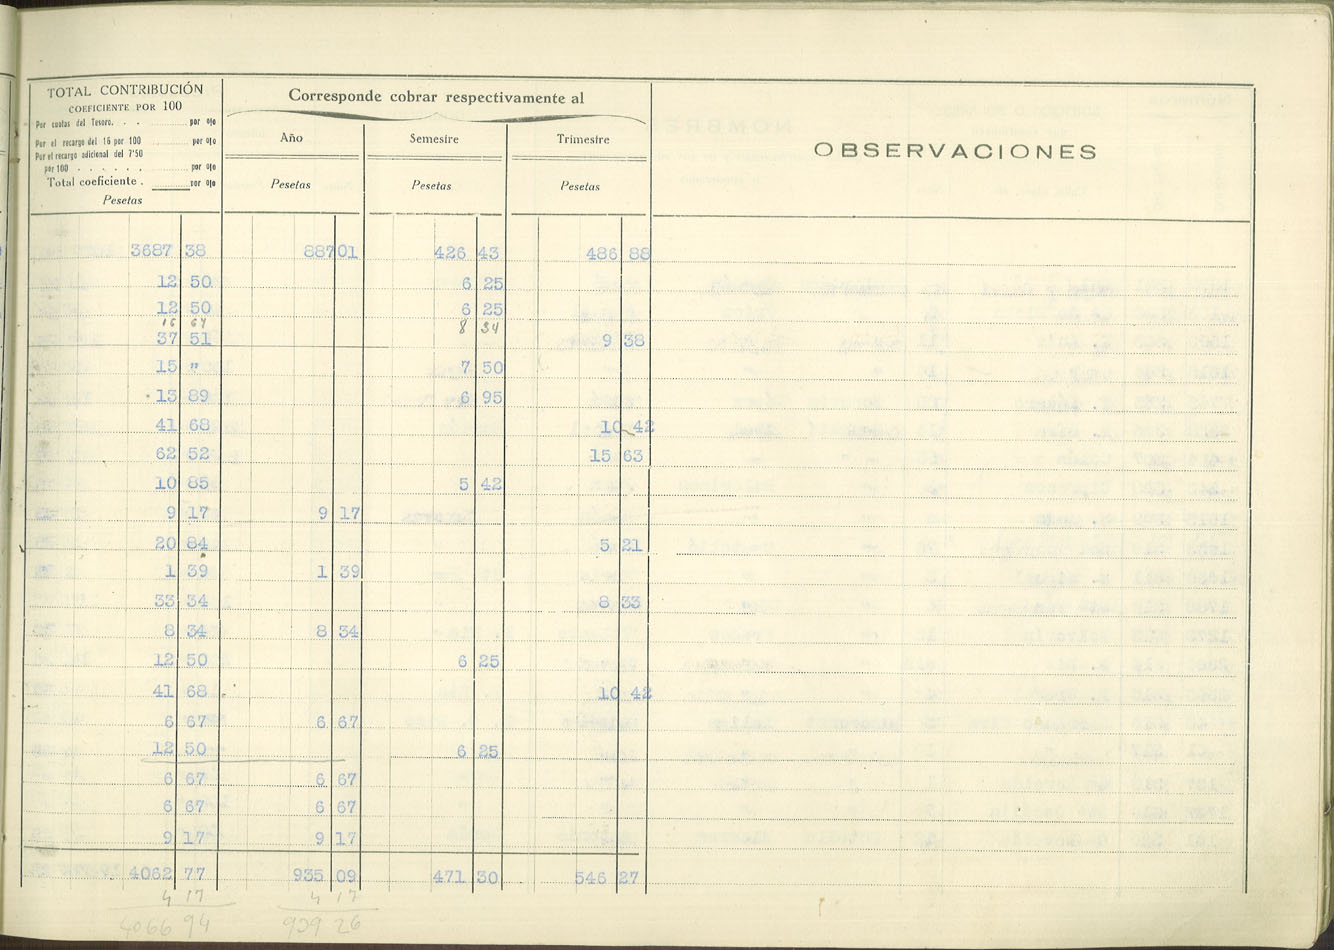 TOTAL CONTRIBUCIÓN
COEFICIENTE POR 100
Por cuotas del Tesoro. . . por o|o
Por el recargo del 16 por 100 por o|o
Por el recargo adicional del 7'50
por 100 . . . . . . por o|o
Total coeficiente . por o|o
Pesetas
Corresponde cobrar respectivamente al
Año Semestre Trimestre
Pesetas Pesetas Pesetas
OBSERVACIONES
3687 38 887 01 426 43 486 88
12 50 6 25
12 50 6 25
16 67 8 34
37 51 9 38
15 " 7 50
13 89 6 95
41 68 10 42
62 52 15 63
10 85 5 42
9 17 9 17
20 84 5 21
1 39 1 39
33 34 8 33
8 34 8 34
12 50 6 25
41 68 10 42
6 67 6 67
12 50 6 25
6 67 6 67
6 67 6 67
9 17 9 17
4062 77 935 09 471 30 546 27
4 17 4 17
4066 94 939 26